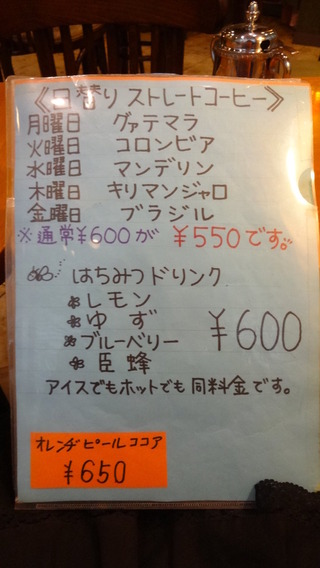 《日替り ストレートコーヒー》
月曜日 グァテマラ
火曜日 コロンビア
水曜日 マンデリン
木曜日 キリマンジャロ
金曜日 ブラジル
※通常¥600が ¥550です。
はちみつドリンク
レモン
ゆず
ブルーベリー
臣蜂
¥600
アイスでもホットでも同料金です。
オレンヂピールココア
¥650